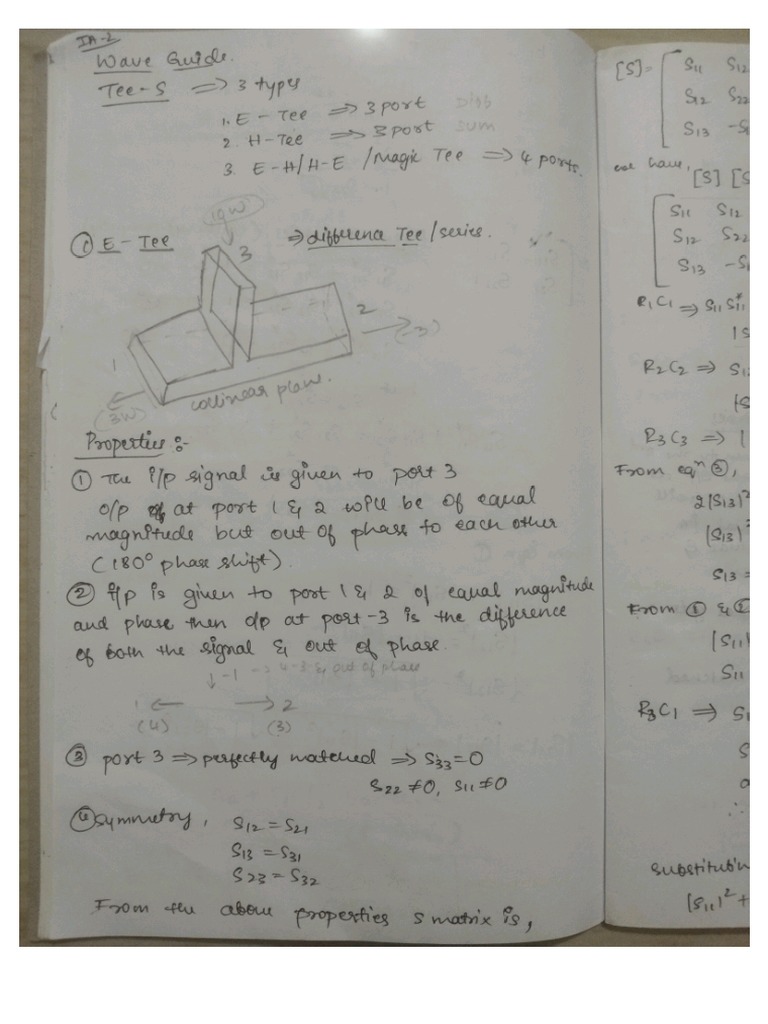 IA-2
Wave Guide.
Tee-S => 3 types
1. E - Tee => 3 port
2. H - Tee => 3 port sum
3. E-H/H-E /Magic Tee => 4 ports.
10W
① E - Tee => difference Tee/series.
3
2
(-3)
1
(3W)
collinear plane.
Properties :-
① The i/p signal is given to port 3
o/p at port 1 & 2 will be of equal
magnitude but out of phase to each other
(180° phase shift).
② i/p is given to port 1 & 2 of equal magnitude
and phase then o/p at port -3 is the difference
of both the signal & out of phase.
↓ -1 -> 4-3 & out of phase
1 ← → 2
(4) (3)
③ port 3 => perfectly matched => S33 = 0
S22 ≠ 0, S11 ≠ 0
④ symmetry, S12 = S21
S13 = S31
S23 = S32
From the above properties S matrix is,
[S] = [ S11 S12
S12 S22
S13 -S
we have,
[S] [S
S11 S12
S12 S22
S13 -S
R1C1 => S11 S11*
R2C2 => S12
R3C3 => 1
From eqn ③,
2|S13|²
|S13|²
S13 =
From ① & ②
|S11|
S11
R3C1 => S
∴
Substitutin
|S11|² +